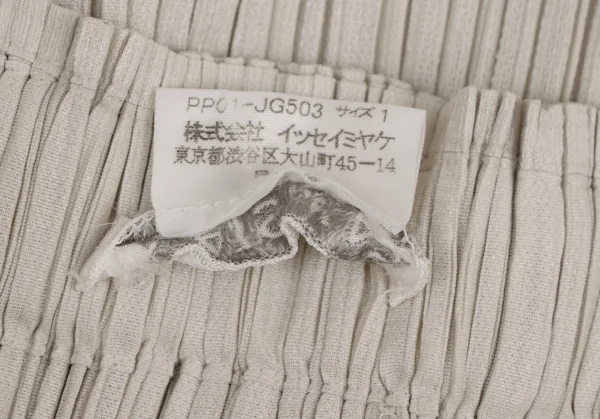 PP01-JG503 サイズ 1
株式会社 イッセイミヤケ
東京都渋谷区大山町45-14